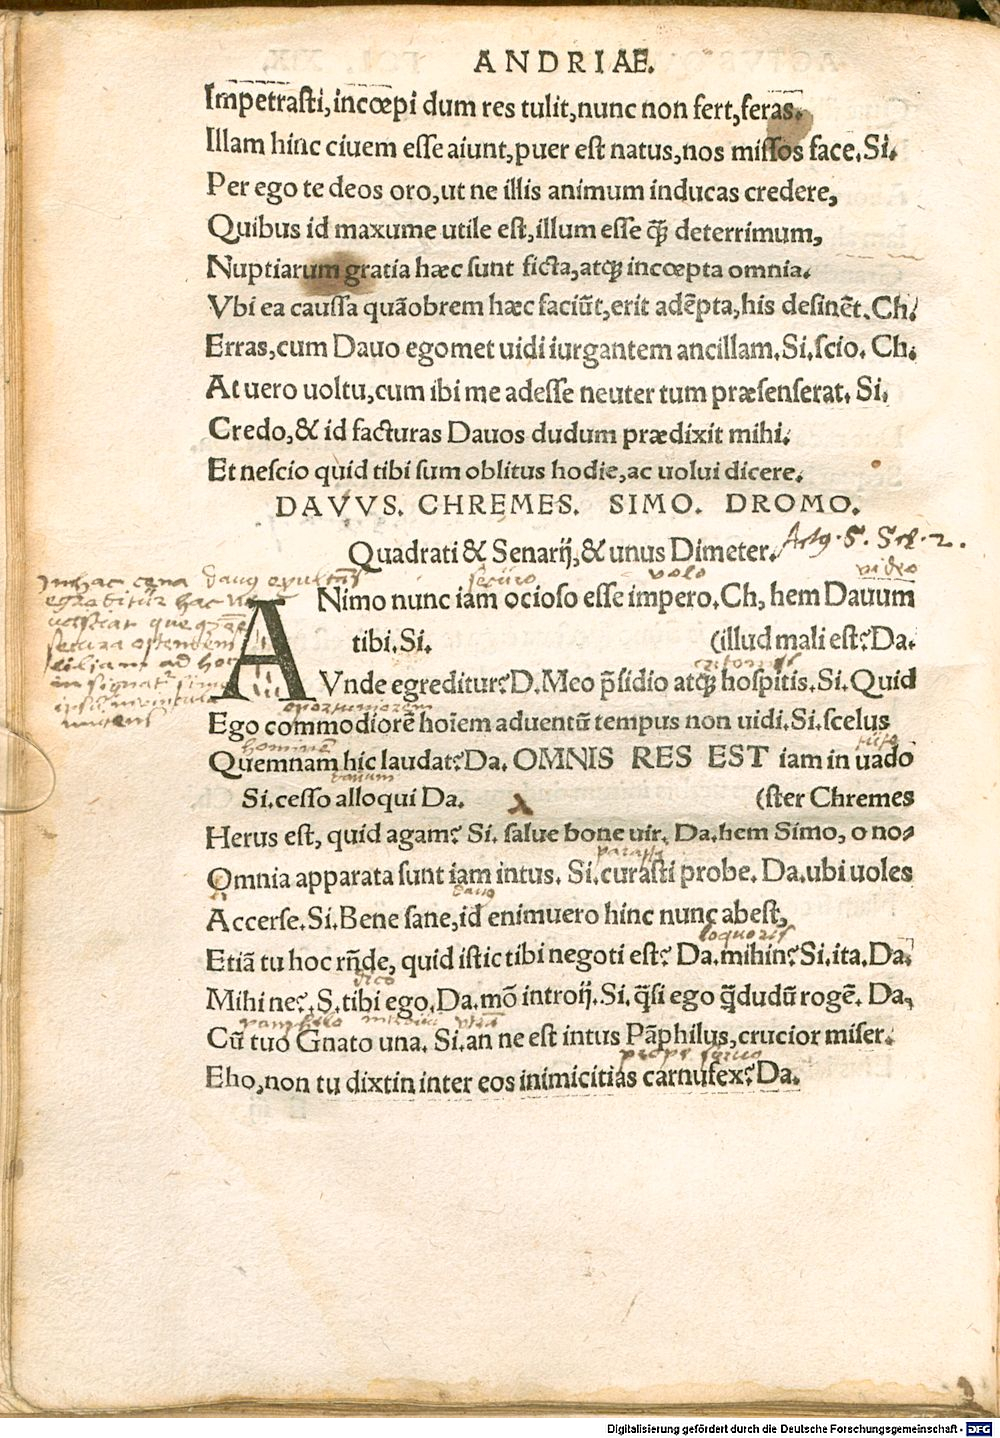 ANDRIAE.
Impetrasti, incœpi dum res tulit, nunc non fert, feras.
Illam hinc ciuem esse aiunt, puer est natus, nos missos face. Si.
Per ego te deos oro, ut ne illis animum inducas credere,
Quibus id maxume utile est, illum esse q̃ deterrimum,
Nuptiarum gratia hæc sunt ficta, atq; incœpta omnia.
Vbi ea caussa quãobrem hæc faciũt, erit adẽpta, his desinẽt. Ch.
Erras, cum Dauo egomet uidi iurgantem ancillam. Si. scio. Ch.
At uero uoltu, cum ibi me adesse neuter tum præsenserat. Si.
Credo, & id facturas Dauos dudum prædixit mihi.
Et nescio quid tibi sum oblitus hodie, ac uolui dicere.
DAVVS. CHREMES. SIMO. DROMO.
Quadrati & Senarij, & unus Dimeter. Actꝰ. 5. Sce. 2.
securo uolo video
ANimo nunc iam ocioso esse impero. Ch, hem Dauum
tibi. Si. (illud mali est? Da.
Vnde egreditur? D. Meo p̃sidio atq; hospitis. Si. Quid
oportuniorem
Ego commodiorẽ hoĩem aduentũ tempus non uidi. Si. scelus
hominẽ
Quemnam hic laudat? Da. OMNIS RES EST iam in uado
dauum
Si. cesso alloqui Da. (ster Chremes
Herus est, quid agam? Si. salue bone uir. Da. hem Simo, o no-
Omnia apparata sunt iam intus. Si. curasti probe. Da. ubi uoles
Accerse. Si. Bene sane, id enimuero hinc nunc abest,
loqueris
Etiã tu hoc rñde, quid istic tibi negoti est? Da. mihin? Si. ita. Da.
dico
Mihi ne?. S. tibi ego. Da. mõ introij. Si. q̃si ego q̃dudũ rogẽ. Da,
pamphilo
Cũ tuo Gnato una. Si. an ne est intus Pãphilus, crucior miser.
Eho, non tu dixtin inter eos inimicitias carnufex? Da.
Digitalisierung gefördert durch die Deutsche Forschungsgemeinschaft - DFG